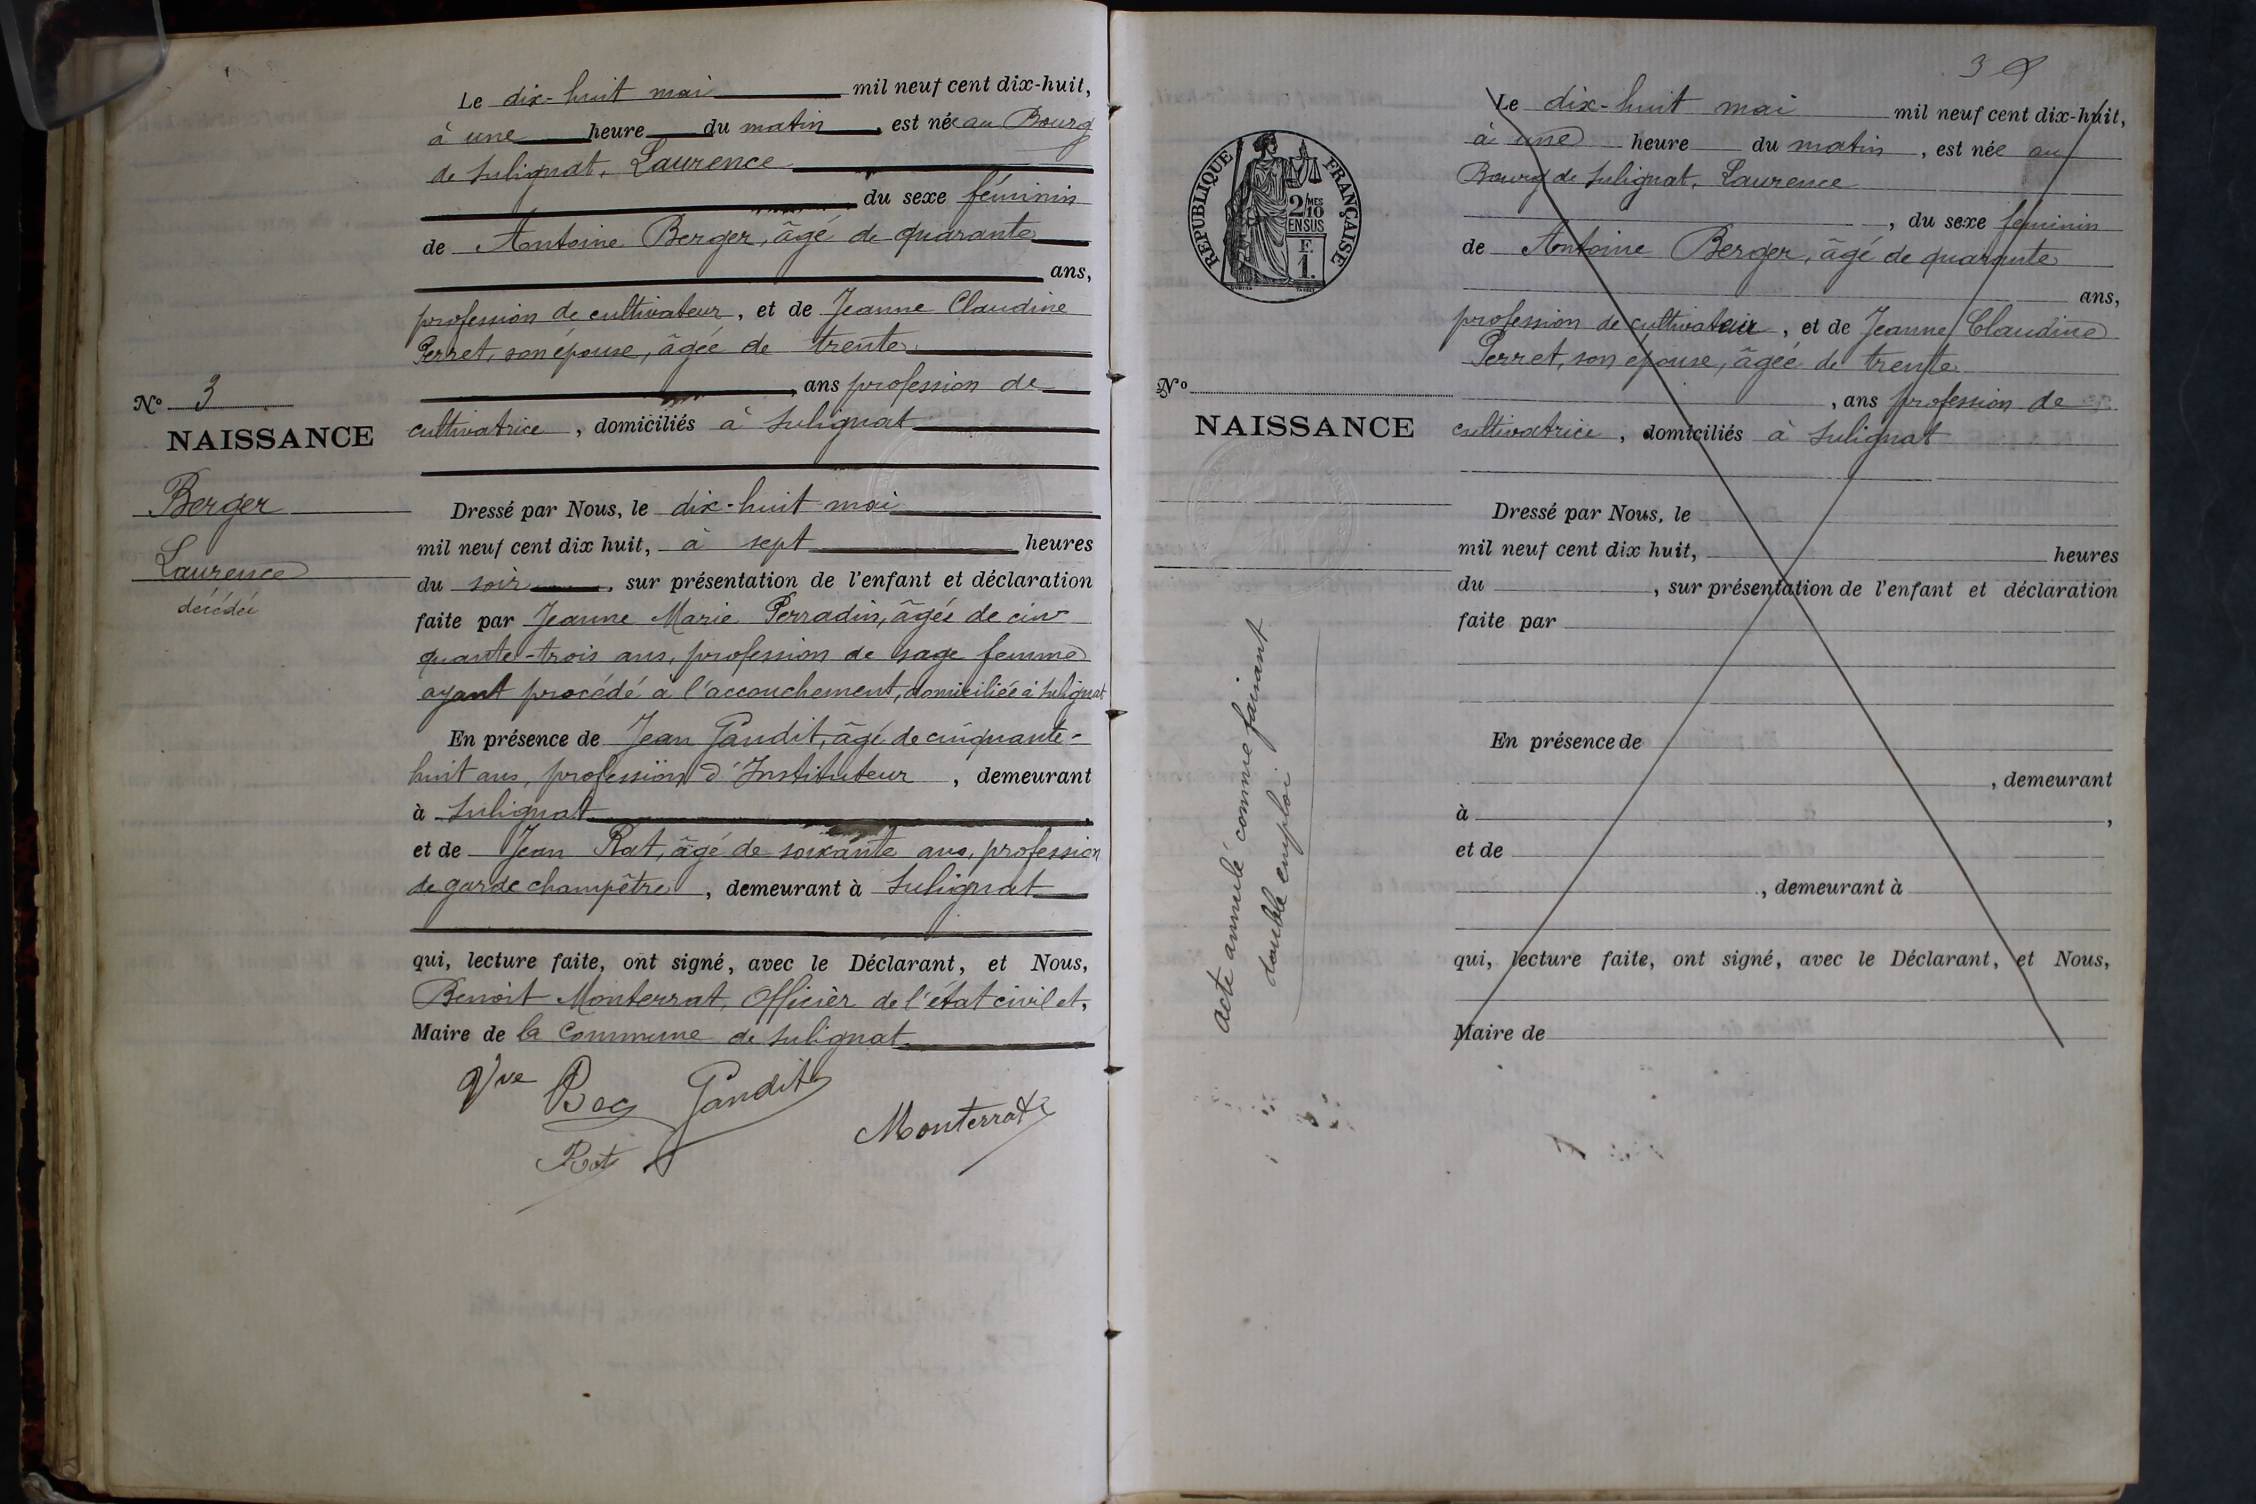 Le dix-huit mai mil neuf cent dix-huit,
à une heure du matin, est née au Bourg
de Sulignat, Laurence
du sexe féminin
de Antoine Berger, âgé de quarante
ans,
profession de cultivateur, et de Jeanne Claudine
Perret, son épouse, âgée de trente
, ans profession de
cultivatrice, domiciliés à Sulignat
N° 3
NAISSANCE
Berger
Laurence
décédée
Dressé par Nous, le dix-huit mai
mil neuf cent dix huit, à sept heures
du soir, sur présentation de l'enfant et déclaration
faite par Jeanne Marie Perradin, âgée de cin
quante-trois ans, profession de sage femme
ayant procédé à l'accouchement, domiciliée à Sulignat
En présence de Jean Gandit, âgé de cinquante-
huit ans, profession d'Instituteur, demeurant
à Sulignat,
et de Jean Rat, âgé de soixante ans, profession
de garde champêtre, demeurant à Sulignat
qui, lecture faite, ont signé, avec le Déclarant, et Nous,
Benoit Monterrat, Officier de l'état civil et,
Maire de la Commune de Sulignat
Vve Bec Gandit
Monterrat
Rat
3
Le dix-huit mai mil neuf cent dix-huit,
à une heure du matin, est née au
Bourg de Sulignat, Laurence
, du sexe féminin
de Antoine Berger, âgé de quarante
ans,
profession de cultivateur, et de Jeanne Claudine
Perret, son épouse, âgée de trente
, ans profession de
cultivatrice, domiciliés à Sulignat
RÉPUBLIQUE FRANÇAISE
2/10 MES
EN SUS
F.
1.
N°
NAISSANCE
acte annulé comme faisant
double emploi
Dressé par Nous, le
mil neuf cent dix huit, heures
du , sur présentation de l'enfant et déclaration
faite par
En présence de
, demeurant
à ,
et de
, demeurant à
qui, lecture faite, ont signé, avec le Déclarant, et Nous,
Maire de